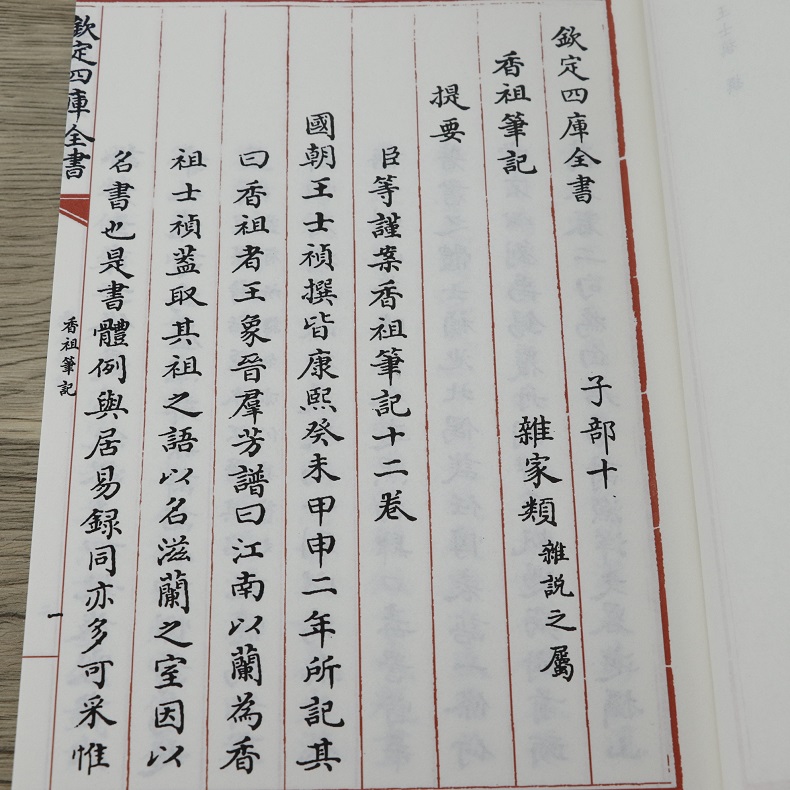 欽定四庫全書 子部十
香祖筆記 雜家類 雜説之屬
提要
臣等謹案香祖筆記十二卷
國朝王士禎撰皆康熙癸未甲申二年所記其
曰香祖者王象晉羣芳譜曰江南以蘭為香
祖士禎蓋取其祖之語以名滋蘭之室因以
名書也是書體例與居易録同亦多可采惟
欽定四庫全書
香祖筆記
一